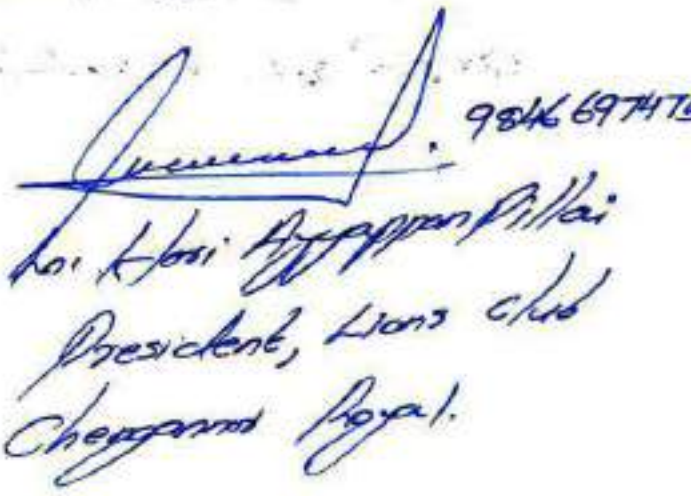 9846697475
Ln. Hari Ayyappan Pillai
President, Lions Club
Chengannur Royal.